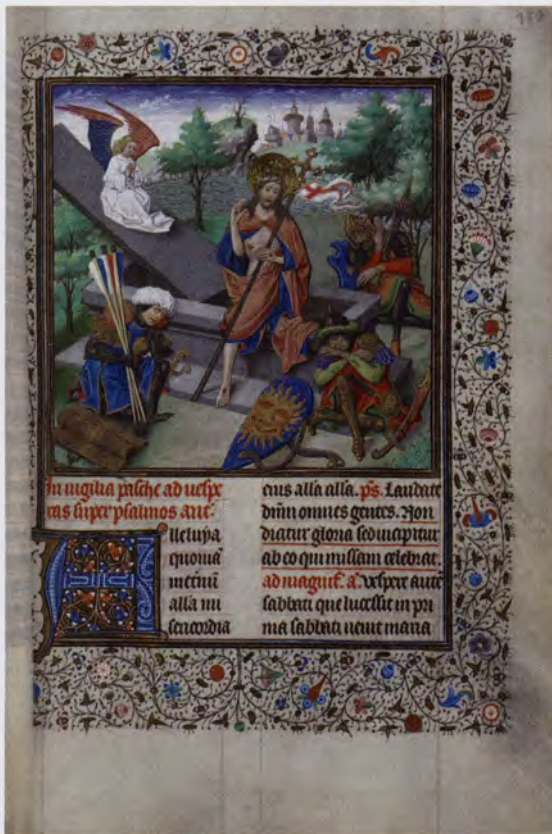 In vigilia pasche ad vespe
ras super psalmos ant̃
Alleluya
quoniã
in eternũ
alla mi
sericordia
eius alla alla. ps. Laudate
dñm omnes gentes. Non
dicitur gloria sed incipitur
ab eo qui missam celebrat.
ad magnif. a. vespere autẽ
sabbati que lucessit in pri
ma sabbati venit maria